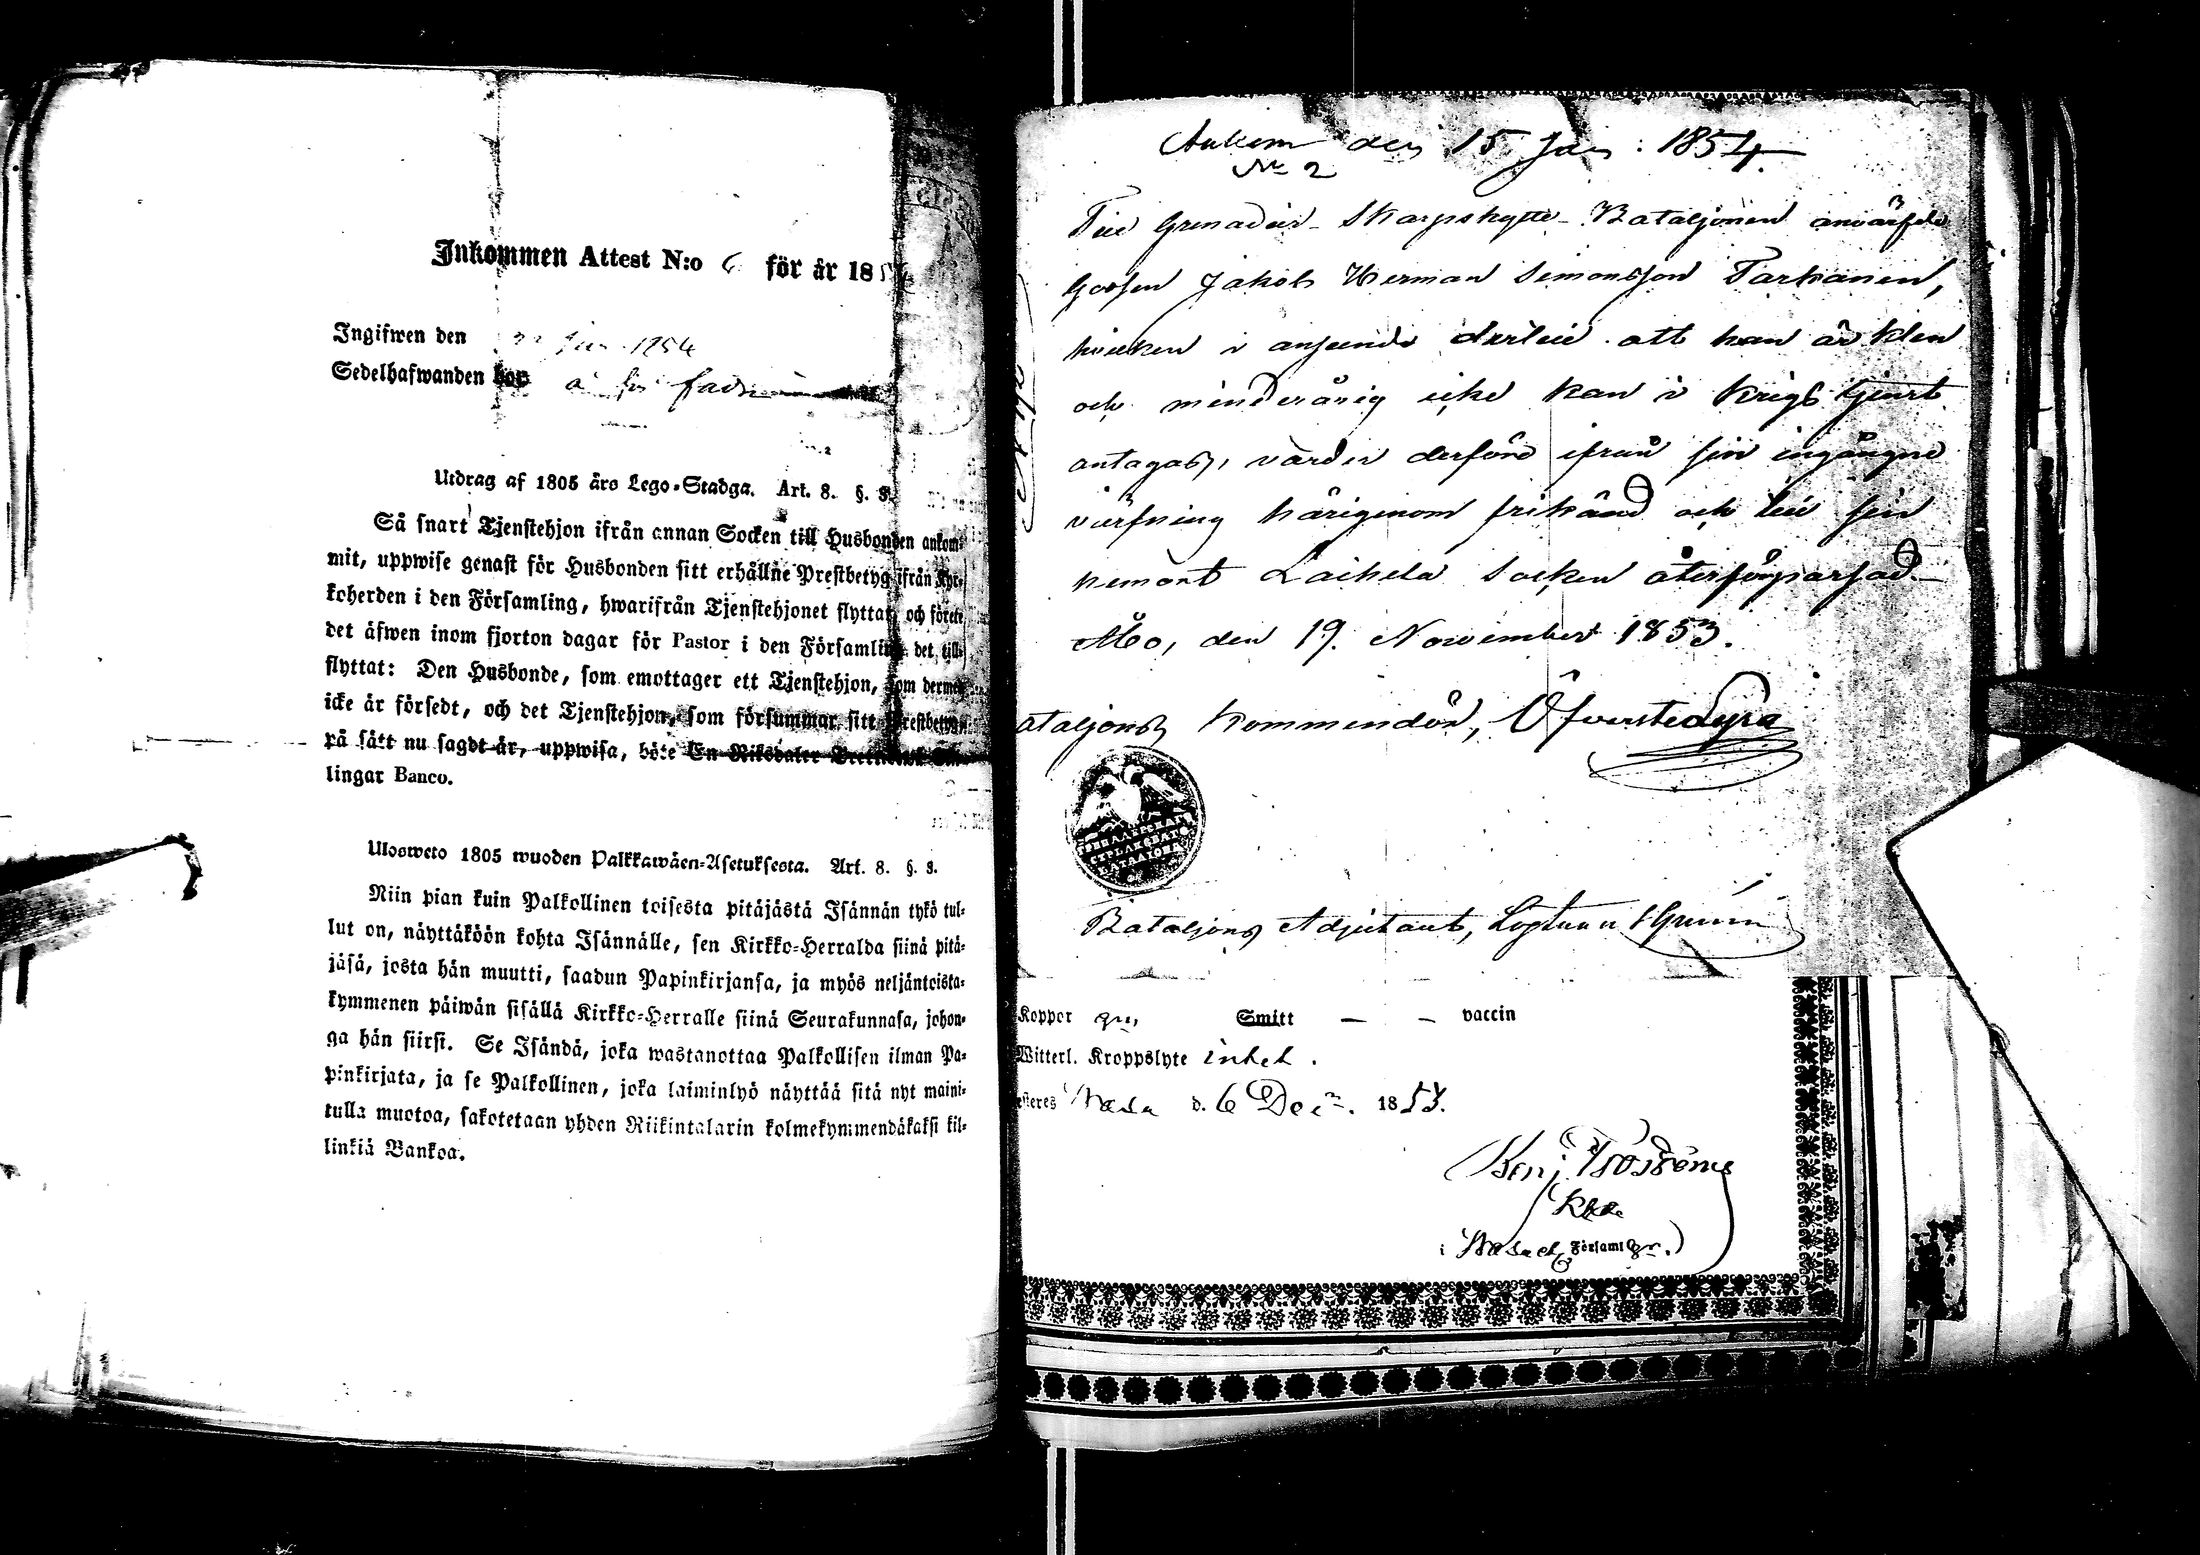 Inkommen Attest N:o 6 för år 185
Ingifwen den Jan. 1854
Sedelhafwanden bor
Utdrag af 1805 års Lego-Stadga. Art. 8. §. 3.
Så snart Tjenstehjon ifrån annan Socken till Husbonden ankom-
mit, uppwise genast för Husbonden sitt erhållne Prestbetyg ifrån Kyr-
koherden i den Församling, hwarifrån Tjenstehjonet flyttat, och förete
det äfwen inom fjorton dagar för Pastor i den Församling det till-
flyttat: Den Husbonde, som emottager ett Tjenstehjon, som dermed
icke är försedt, och det Tjenstehjon, som försummar sitt Prestbetyg,
på sätt nu sagdt är, uppwisa, böte En Riksdaler
lingar Banco.
Ulosweto 1805 wuoden Palkkawäen-Asetuksesta. Art. 8. §. 3.
Niin pian kuin Palkollinen toisesta pitäjästä Isännän tykö tul-
lut on, näyttäköön kohta Isännälle, sen Kirkko-Herralda siinä pitä-
jäsä, josta hän muutti, saadun Papinkirjansa, ja myös neljäntoista-
kymmenen päiwän sisällä Kirkko-Herralle siinä Seurakunnasa, johon-
ga hän siirsi. Se Isändä, joka wastanottaa Palkollisen ilman Pa-
pinkirjata, ja se Palkollinen, joka laiminlyö näyttää sitä nyt maini-
tulla muotoa, sakotetaan yhden Riikintalarin kolmekymmendäkaksi kil-
linkiä Bankoa.
Ankom den 15 Jan: 1854.
No 2
Till Grenadier-Skarpskytte-Bataljonen anvärfde
Gossen Jakob Herman Simonsson Tarkanen,
hvilken i anseende dertill att han är klen
och minderårig icke kan i Krigstjenst
antagas, varder derföre ifrån sin ingångne
värfning härigenom frikänd och till sin
hemort Laihela Socken återförpassad.
Åbo, den 19. November 1853.
ataljons Kommendör, Öfverste
Bataljons Adjutant, Löjtnant
Koppor Smitt — — vaccin
Witterl. Kroppslyte intet.
esteres Wasa d. 6 Dec. 1853.
i Wasa Församl